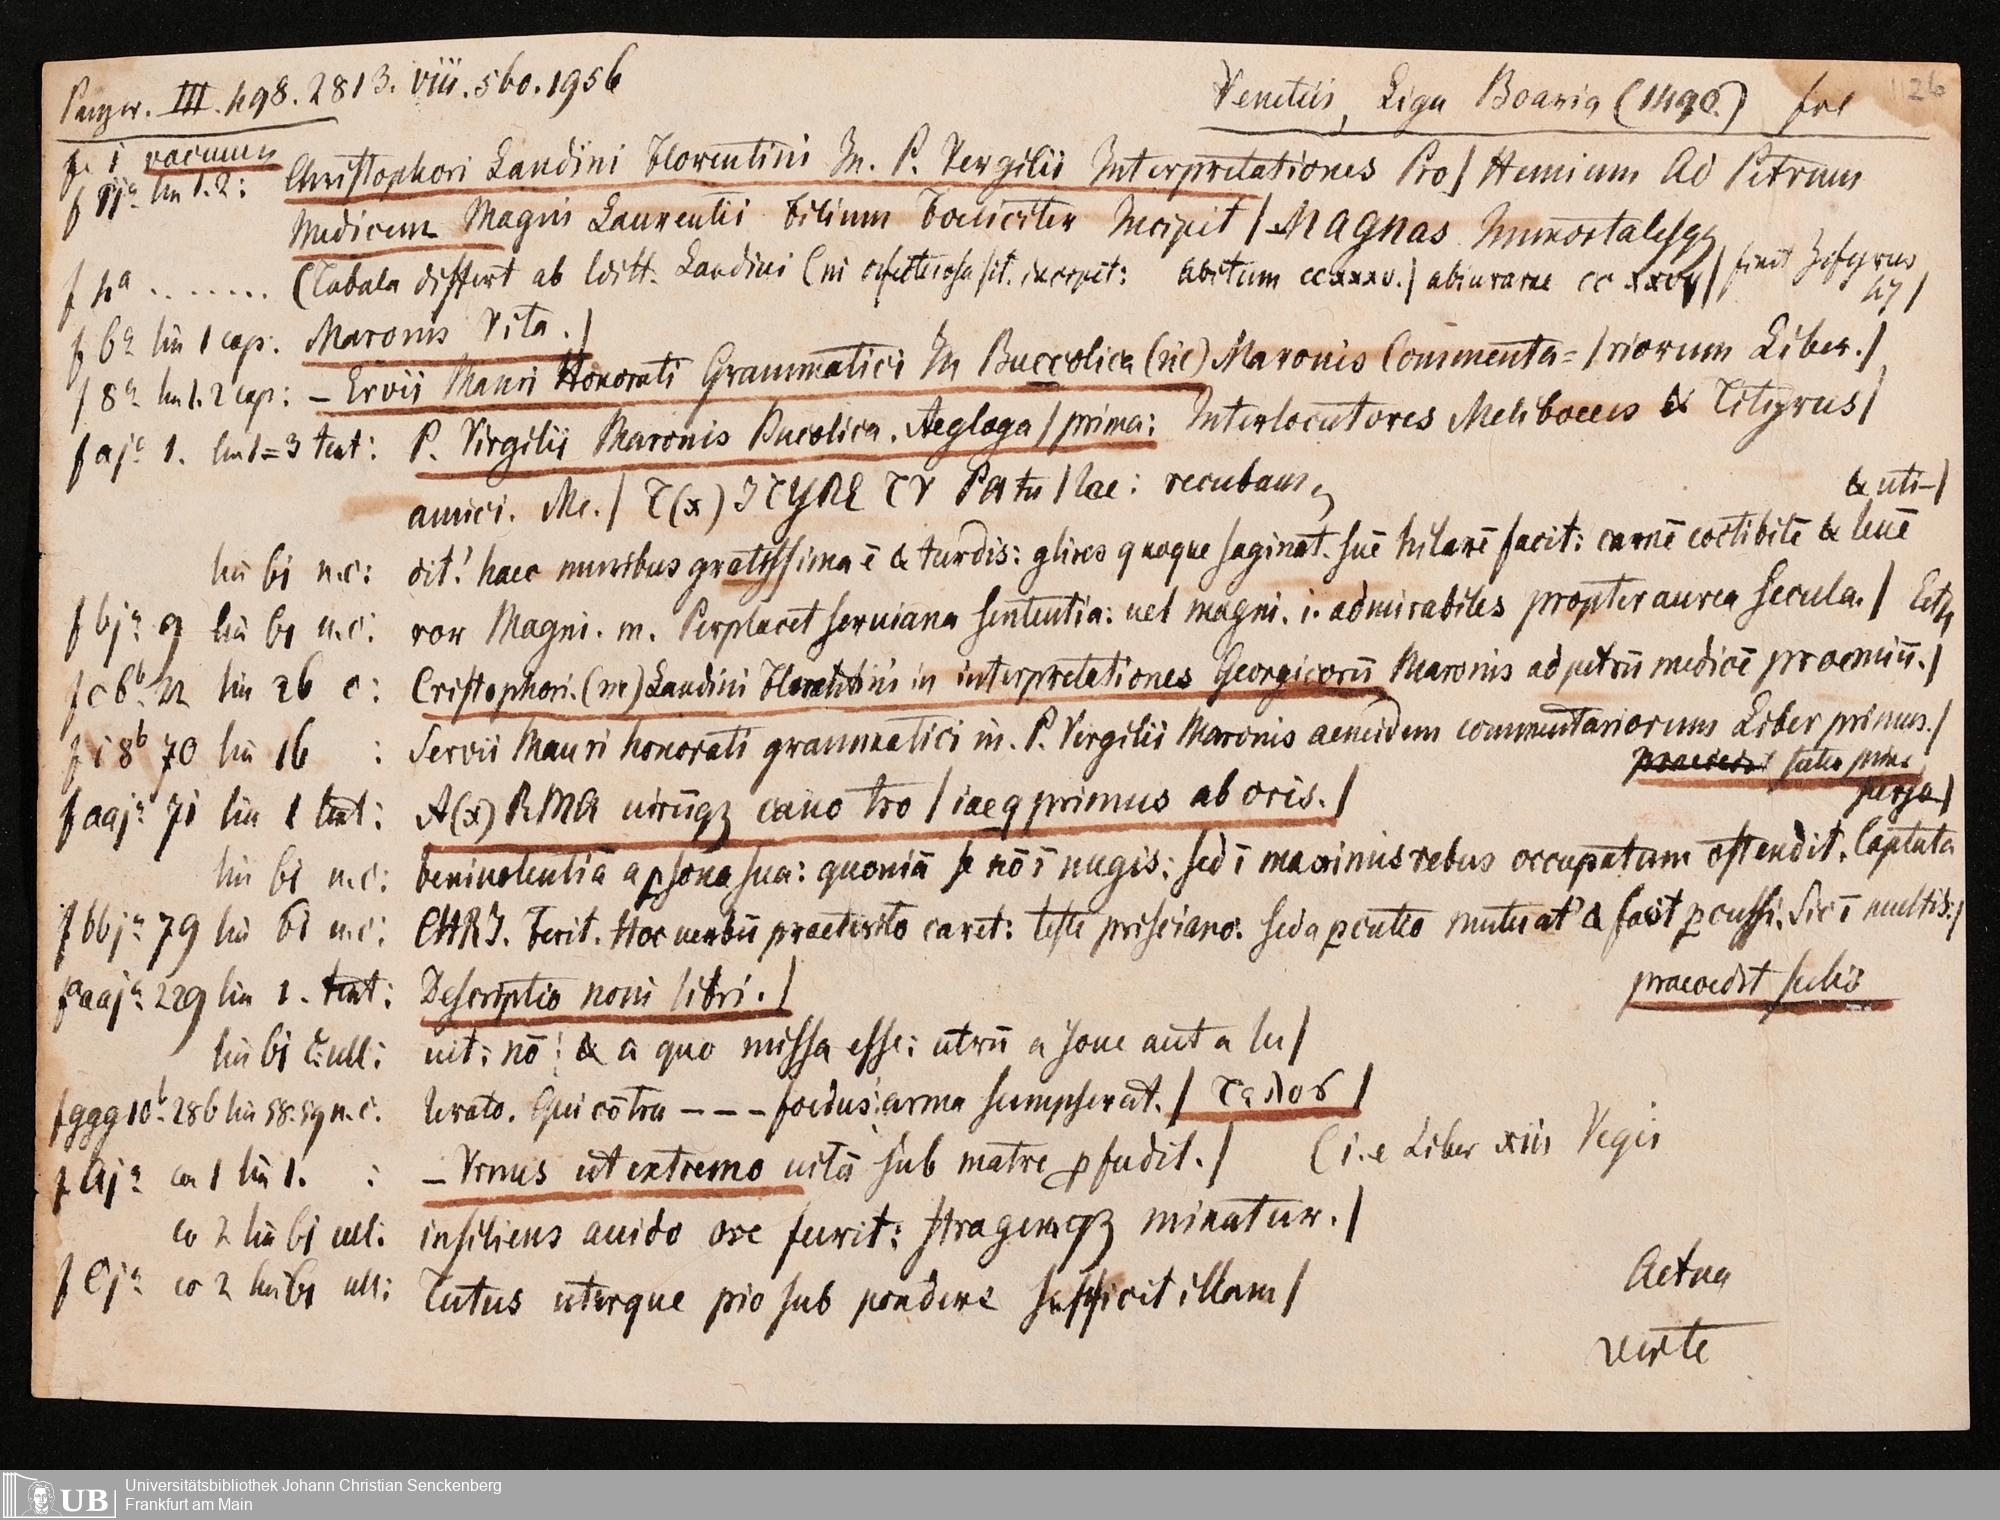 Panzer. III. 498. 2813. viii. 560. 1956 Venetiis, Liga Boaria (1490.) fol 126
f. 1 vacuum
f ij a lin 1.2: Christophori Landini Florentini In. P. Vergilii Interpretationes Pro/ Hemium Ad Petrum
Medicem Magni Laurentii Filium Foeliciter Incipit / MAGNAS Immortalesqz
f 4a ....... (Tabula differt ab Landini incipit: Abitum ccxxxv./ abiurarae cc xxvij/ finit Zefyrus
47/
f 6a lin 1 cap: Maronis Vita./
f 8a lin 1.2 cap: – Ervii Mauri Honorati Grammatici In Buccolica (sic) Maronis Commenta=/riorum Liber./
f aja 1. lin 1=3 text: P. Virgilii Maronis Bucolica. Aegloga / prima: Interlocutores Meliboeus & Tityrus/
amici. Me./ T(x) ITYRE TV PAtu/lae: recubans,
& uti–/
lin 61 n.c: dit: haec muribus gratissima ē & turdis: glires quoque saginat. suē hilarē facit: carnē coctibilē & leuē
f bja 9 lin 61 n.c: ror Magni. m. Perplacet seruiana sententia: uel magni. i. admirabiles propter aurea secula./
f c6b 22 lin 26 c: Cristophori. (sic) Landini Florentini in interpretationes Georgicorū Maronis ad petrū medicē prooemiū./
f i8b 70 lin 16 : Servii Mauri honorati grammatici in. P. Vergilii Maronis aeneidem commentariorum Liber primus./
f aaja 71 lin 1 text: A(x) RMA uirūqz cano tro / iae q primus ab oris./
lin 61 n.c: beniuolentiā a psona sua: quoniā se nō ī nugis: sed ī maximis rebus occupatum ostendit. Captata
f bbja 79 lin 61 n.c: CHRI. Ferit. Hoc uerbū praeterito caret: teste prisciano: sed a pcutio mutuat & facit pcussi. Sic ī multis:/
f aaaja 229 lin 1. text: Descriptio noni libri./ praecedit
lin 61 c. ull: uit: nō: & a quo missa esse: utrū a Ioue aut a Iu/
f ggg 10b. 286 lin 58.59 n.c. lerato. Qui cōtra – – – foedus: arma sumpserat./ Τελος /
f Aja co 1 lin 1. : – Vrnus ut extremo uitā sub matre pfudit./ (i.e Liber xiii Vegii
co 2 lin 61 ull: insiliens auido ore furit: stragemqz minatur./
f Cja co 2 lin 61 ull: Tutus uterque pio sub pondere sufficit illam/ Aetna
verte
Universitätsbibliothek Johann Christian Senckenberg
Frankfurt am Main
UB